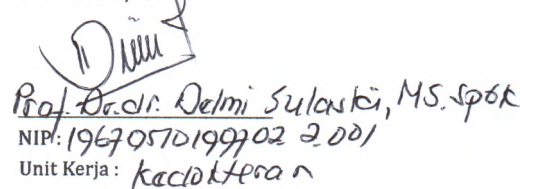 Prof. Dr. dr. Delmi Sulastri, MS. SpGK
NIP : 19670510199702 2.001
Unit Kerja : Kedokteran